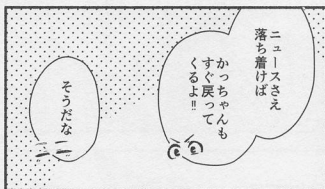 ニュースさえ
落ち着けば
かっちゃんも
すぐ戻って
くるよ!!
そうだな